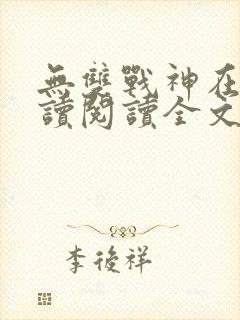 無雙戰神在
讀閱讀全文
李後祥